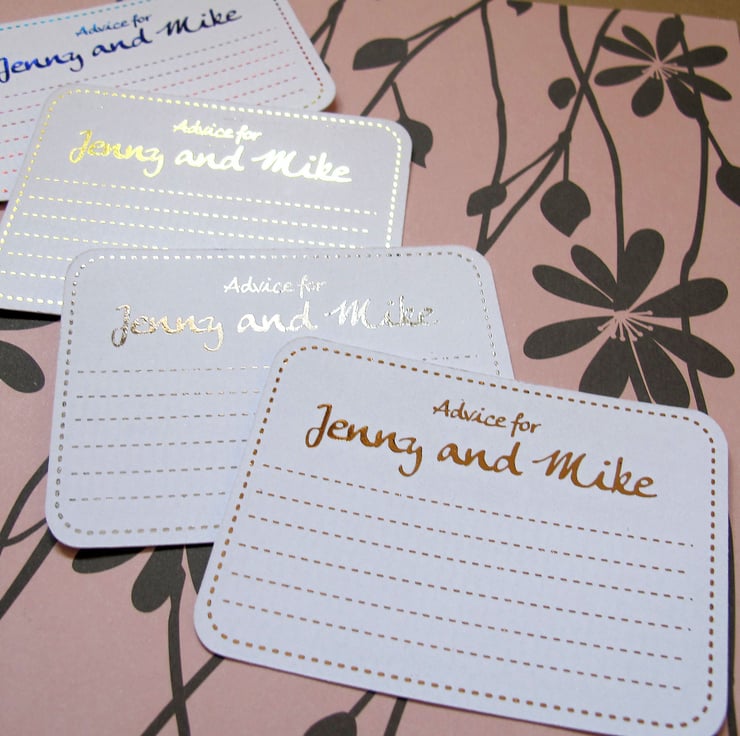 Advice for
Jenny and Mike
Advice for
Jenny and Mike
Advice for
Jenny and Mike
Advice for
Jenny and Mike